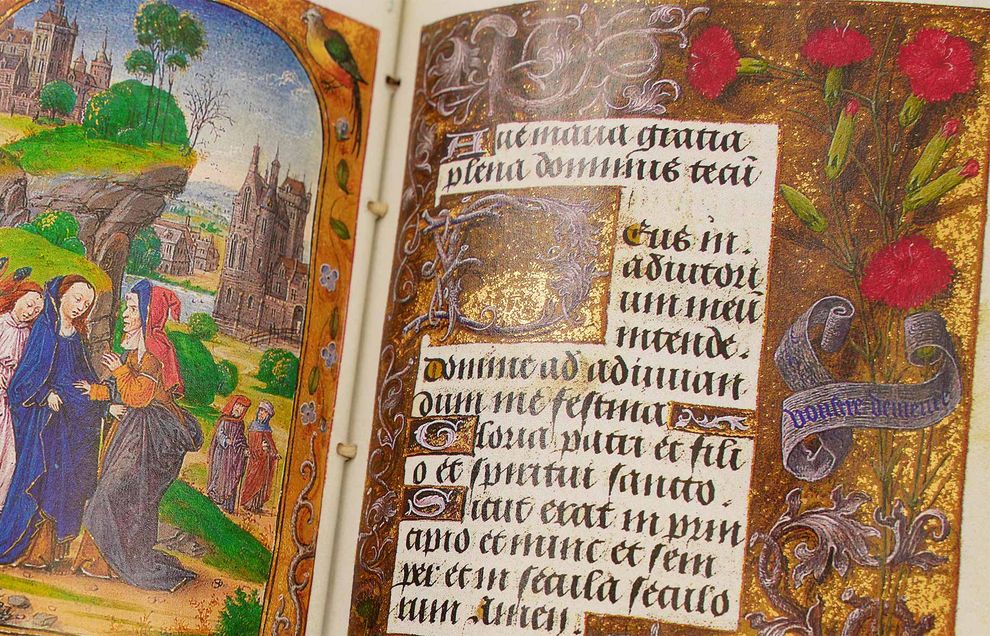 Aue maria gratia
plena dominus tecū
Deus in
adiutori
um meū
intende.
domine ad adiuuan
dum me festina
Gloria patri et fili
o et spiritui sancto.
Sicut erat in prin
cipio et nunc et sem
per et in secula seculo
rum Amen.